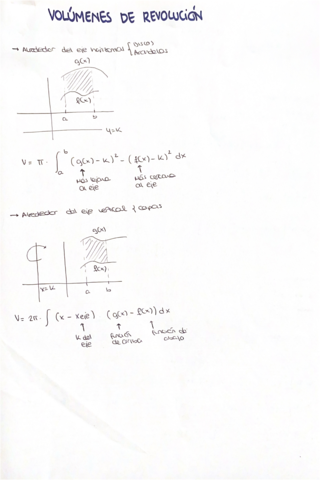 VOLÚMENES DE REVOLUCIÓN
→ Alrededor del eje horizontal { Discos
Arandelas
g(x)
f(x)
a b
y=k
V = π · ∫ₐᵇ (g(x) - k)² - (f(x) - k)² dx
↑ ↑
más lejana más cercana
al eje al eje
→ Alrededor del eje vertical { capas
g(x)
f(x)
x=k a b
V= 2π · ∫ (x - xeje) (g(x) - f(x)) dx
↑ ↑ ↑
k del función función de
eje de arriba abajo